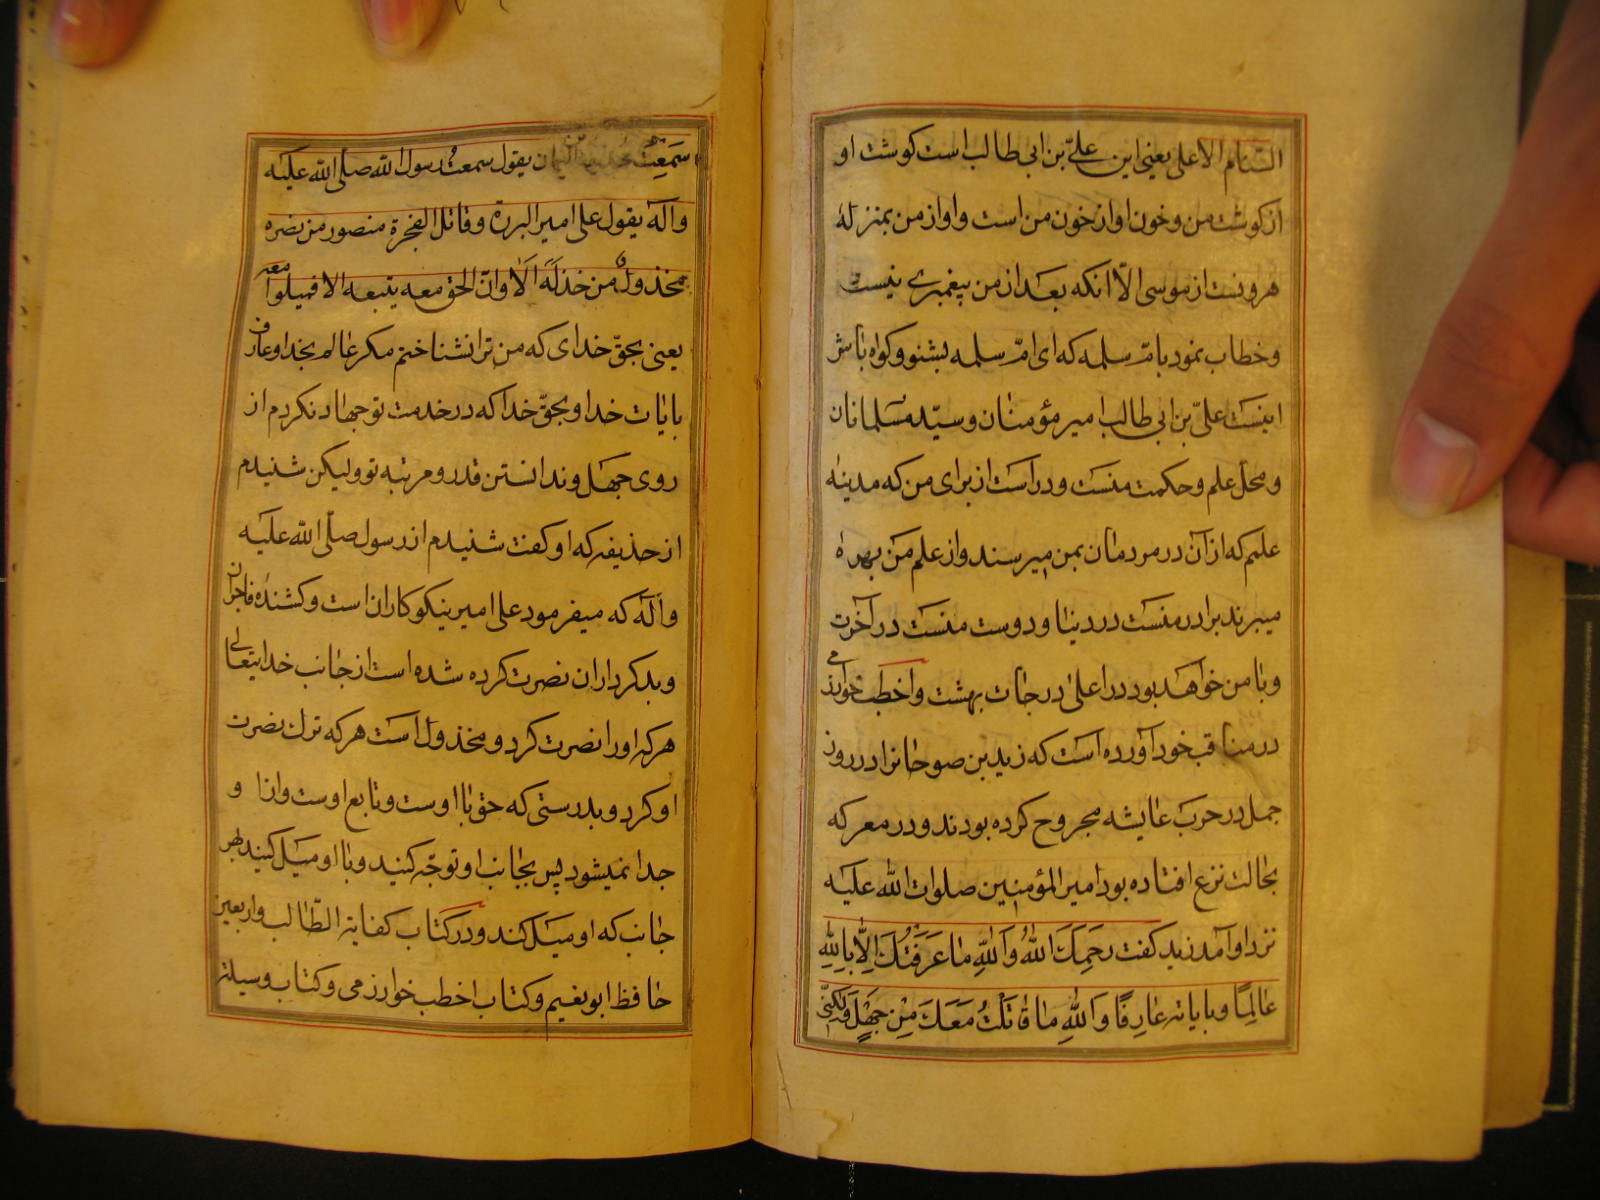 السّنام الاعلی یعنی این علیّ بن ابی طالب است کوشت او
از کوشت من و خون او از خون من است و او از من بمنزلهٔ
هرونست از موسی الّا انکه بعد از من پیغمبرے نیست
و خطاب نمود بامّ سلمه که ای امّ سلمه بشنو و کواه باش
اینست علیّ بن ابی طالب امیر مؤمنان و سیّد مسلمانان
و محلّ علم و حکمت منست و در است از برای من که مدینهٔ
علمم که از آن در مردمان بمن میرسند و از علم من بهره
میبرند برادر منست در دنیا و دوست منست در آخرت
و با من خواهد بود در اعلیٰ درجات بهشت و اخطب خوارزمی
در مناقب خود آورده است که زید بن صوحانرا در روز
جمل در حرب عایشه مجروح کرده بودند و در معرکه
بحالت نزع افتاده بود امیر المؤمنین صلوات اللّه علیه
نزد او آمد زید کفت رحمك اللّهُ وَاللّهِ ما عَرَفْتُكَ اِلّا بِاللّهِ
عالِمًا و بایاته عارِفًا وَاللّهِ ما قاتَلْتُ مَعَكَ مِنْ جَهْلٍ وَلٰکِنّی
سَمِعْتُ یقول سمعتُ رسول اللّه صلّی اللّه علیه
و آله یقول علی امیر البررة و قاتل الفجرة منصور من نصره
مخذول من خذله الا وانّ الحق معه یتبعه الا فمیلوا معه
یعنی بحقّ خدای که من ترا نشناختم مکر عالم بخدا و عارف
بایات خدا و بحقّ خدا که در خدمت تو جهاد نکردم از
روی جهل و ندانستن قدر و مرتبه تو و لیکن شنیدم
از حذیفه که او کفت شنیدم از رسول صلّی اللّه علیه
و آله که میفرمود علی امیر نیکوکاران است و کشندهٔ فاجران
و بدکرداران نصرت کرده شده است از جانب خدایتعالی
هرکه او را نصرت کرد و مخذول است هرکه ترك نصرت
او کرد و بدرستی که حق با اوست و تابع اوست و از ا و
جدا نمیشود پس بجانب او توجّه کنید و با او میل کنید بهر
جانب که او میل کند و در کتاب کفایة الطّالب و اربعین
حافظ ابو نعیم و کتاب اخطب خوارزمی و کتاب وسیلة